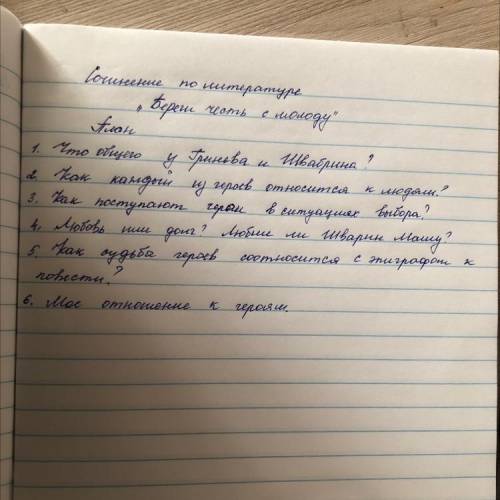 Сочинение по литературе
„Береги честь с молоду"
План
1. Что общего у Гринева и Швабрина?
2. Как каждый из героев относится к людям?
3. Как поступают герои в ситуациях выбора?
4. Любовь или долг? Любил ли Шварин Машу?
5. Как судьба героев соотносится с эпиграфом к
повести?
6. Мое отношение к героям.